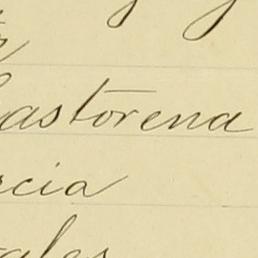 Castorena
rcia
ales